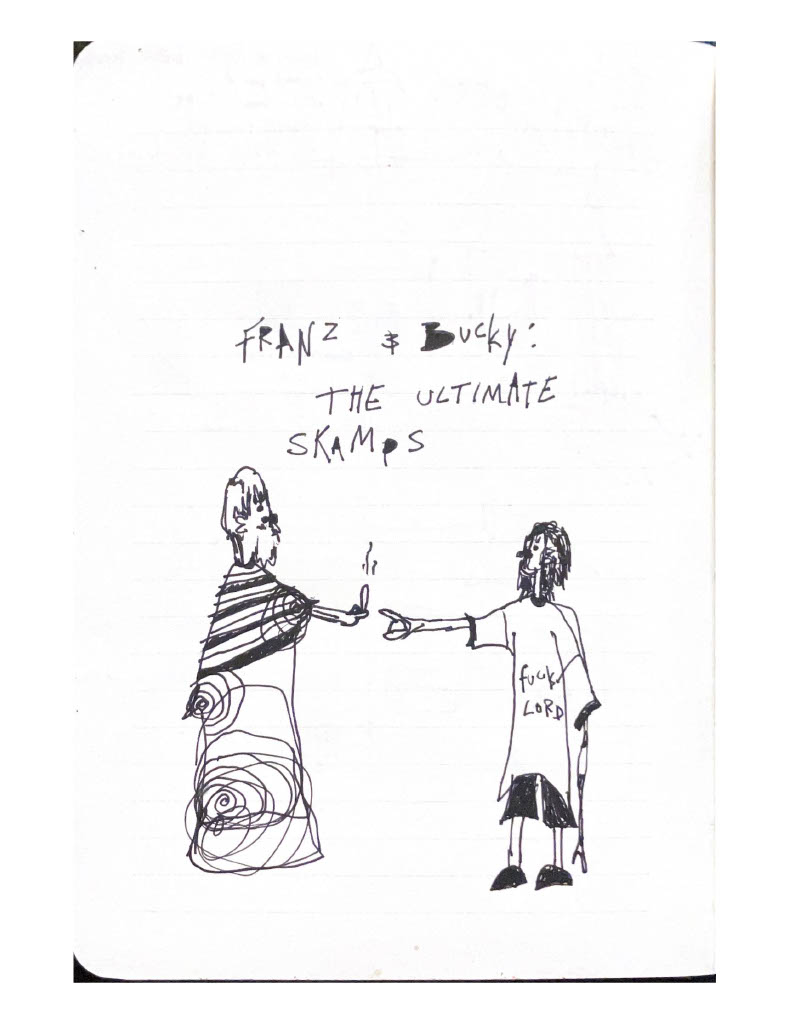 FRANZ & BUCKY:
THE ULTIMATE
SKAMPS
fuck
LORD